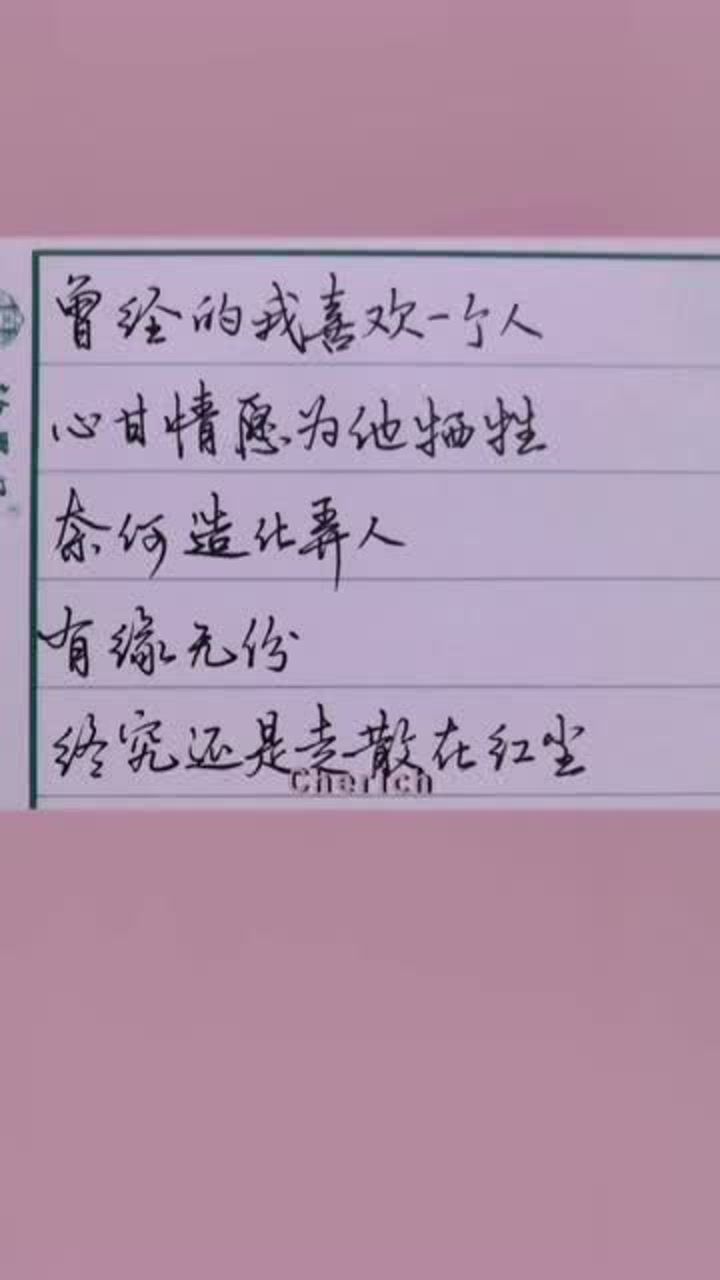 曾经的我喜欢一个人
心甘情愿为他牺牲
奈何造化弄人
有缘无份
终究还是走散在红尘
Cherich